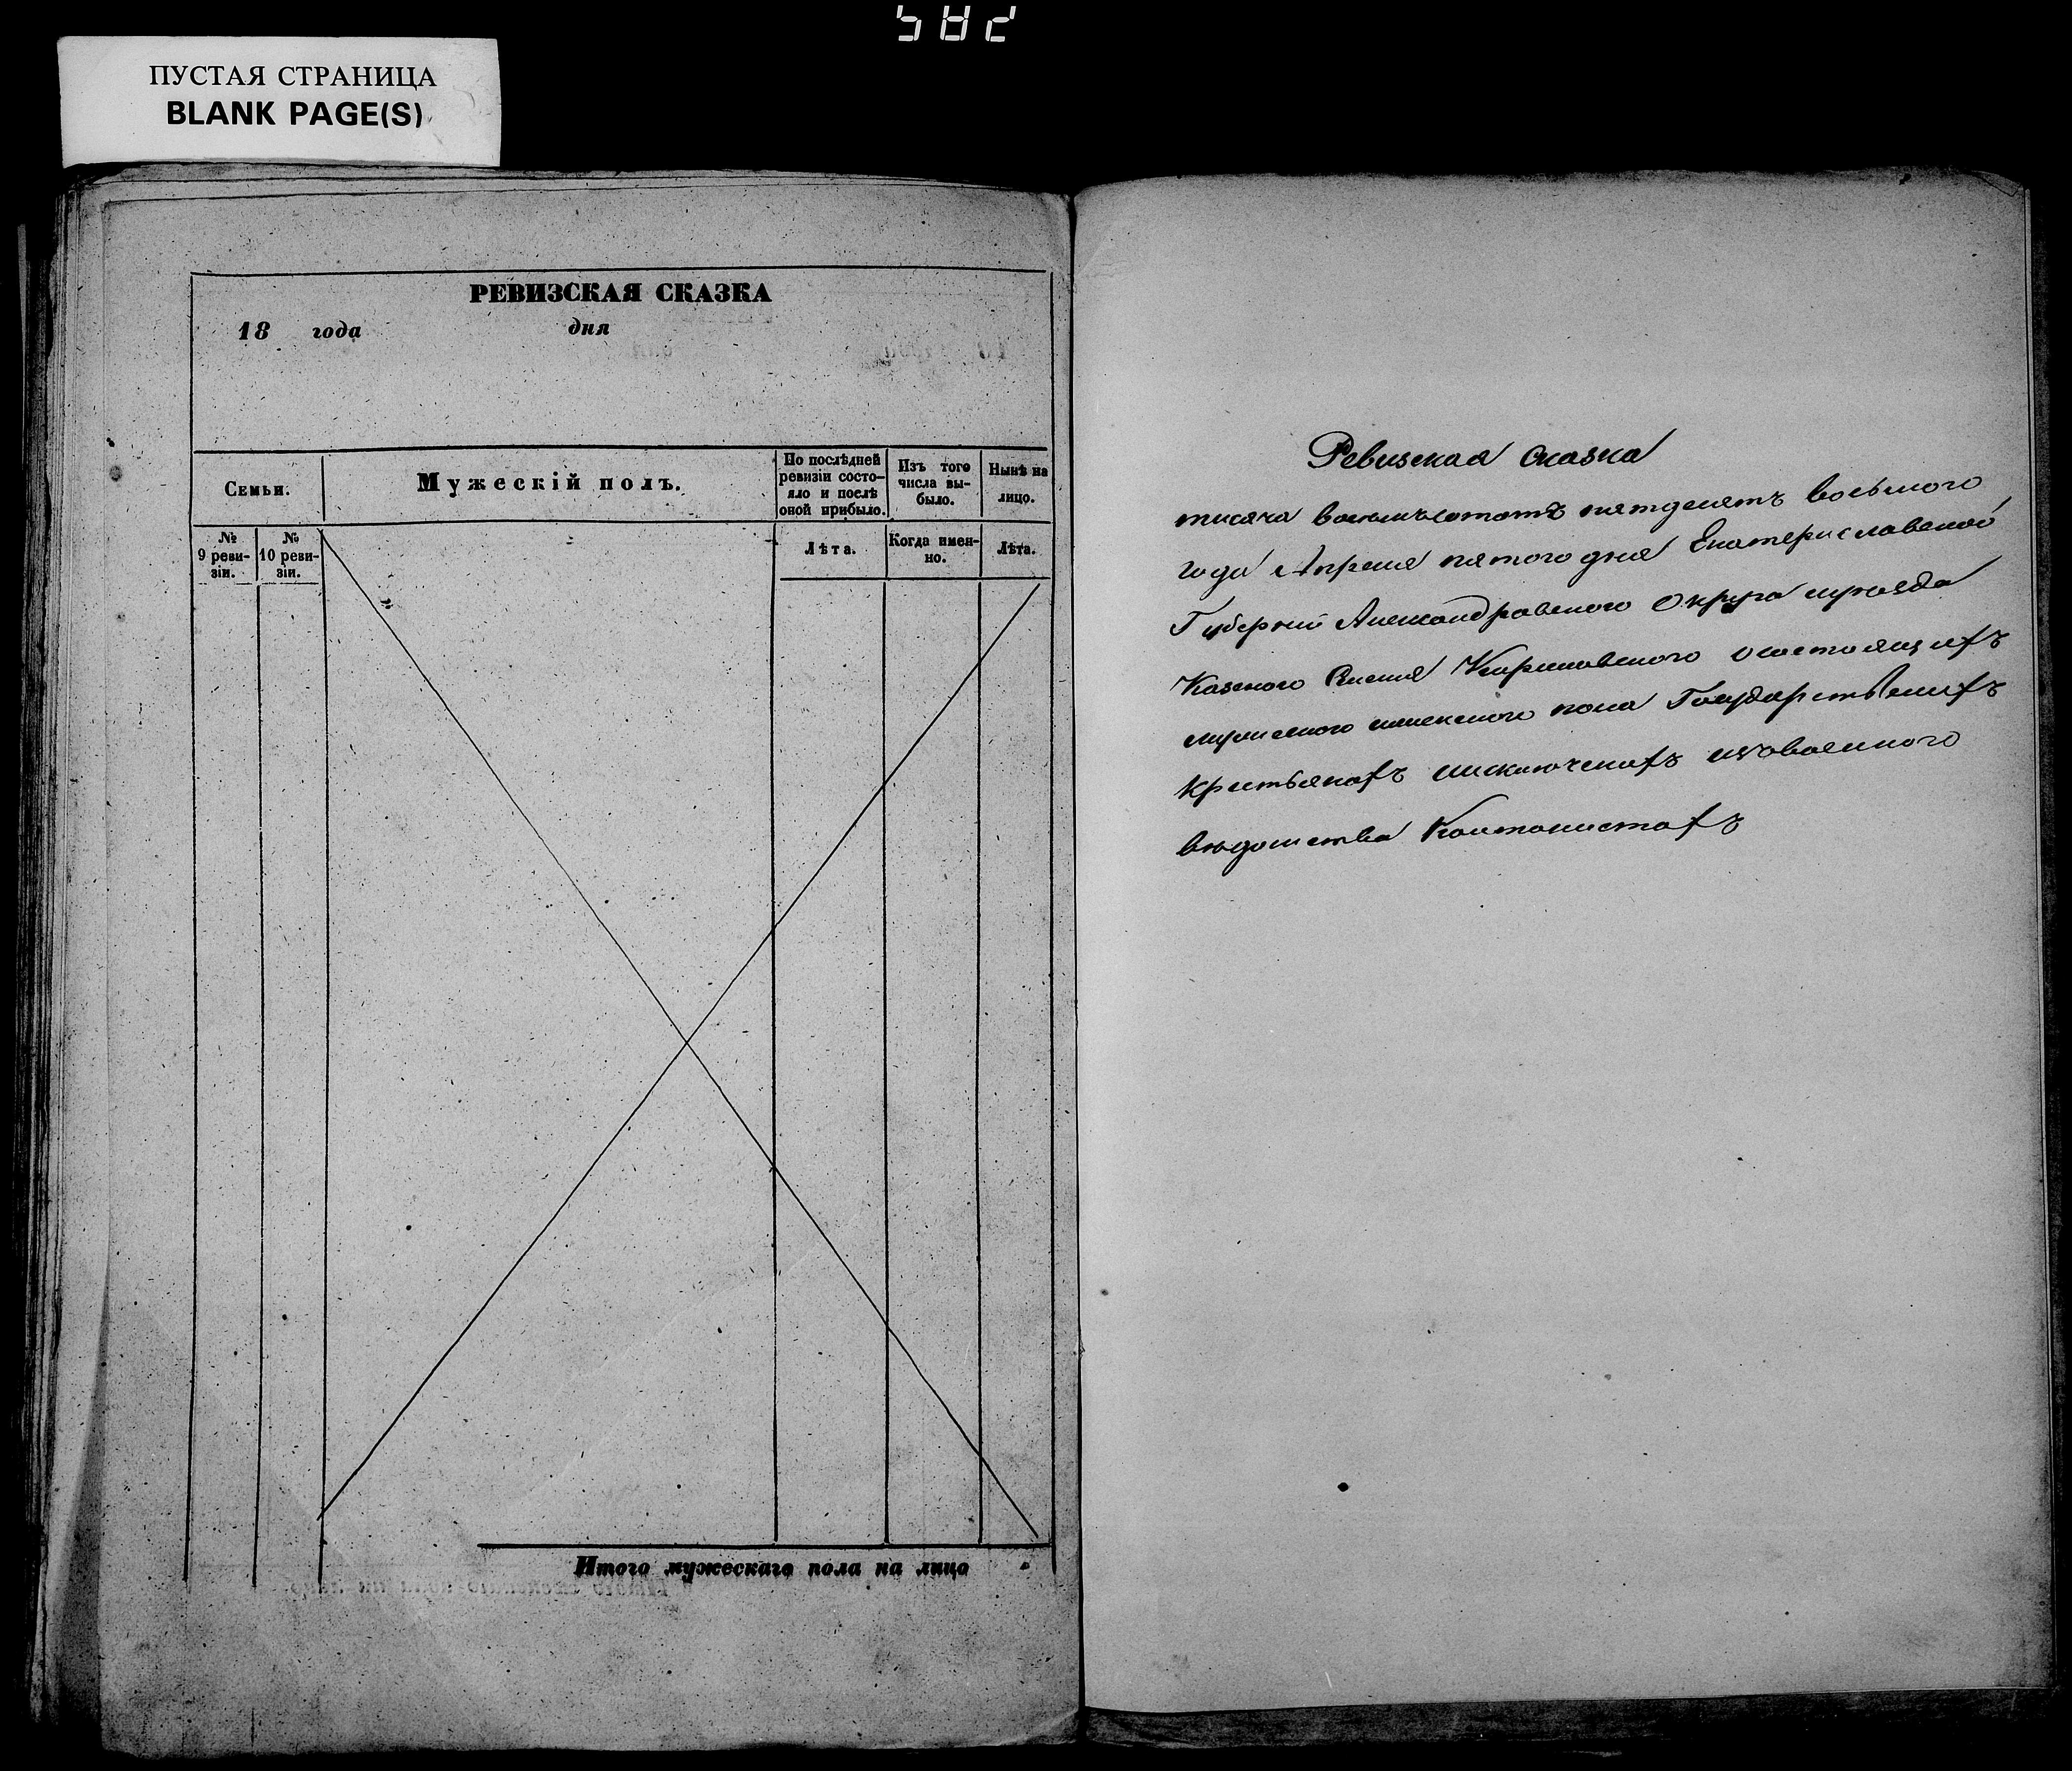 582
ПУСТАЯ СТРАНИЦА
BLANK PAGE(S)
РЕВИЗСКАЯ СКАЗКА
18 года дня
Семьи.
Мужескій полъ.
По послѣдней
ревизіи состо-
яло и послѣ
оной прибыло.
Изъ того
числа вы-
было.
Нынѣ на
лицо.
№
9 реви-
зіи.
№
10 реви-
зіи.
Лѣта.
Когда имен-
но.
Лѣта.
Итого мужескаго пола на лицо
Ревизская сказка
тисяча восемьсототъ пятдесятъ восьмого
года Апреля пятого дня Екатериславской
Губерний Александравского Округа
Казеного Селения
пола Государственихъ
крестьянахъ
ведомства Кантонистахъ